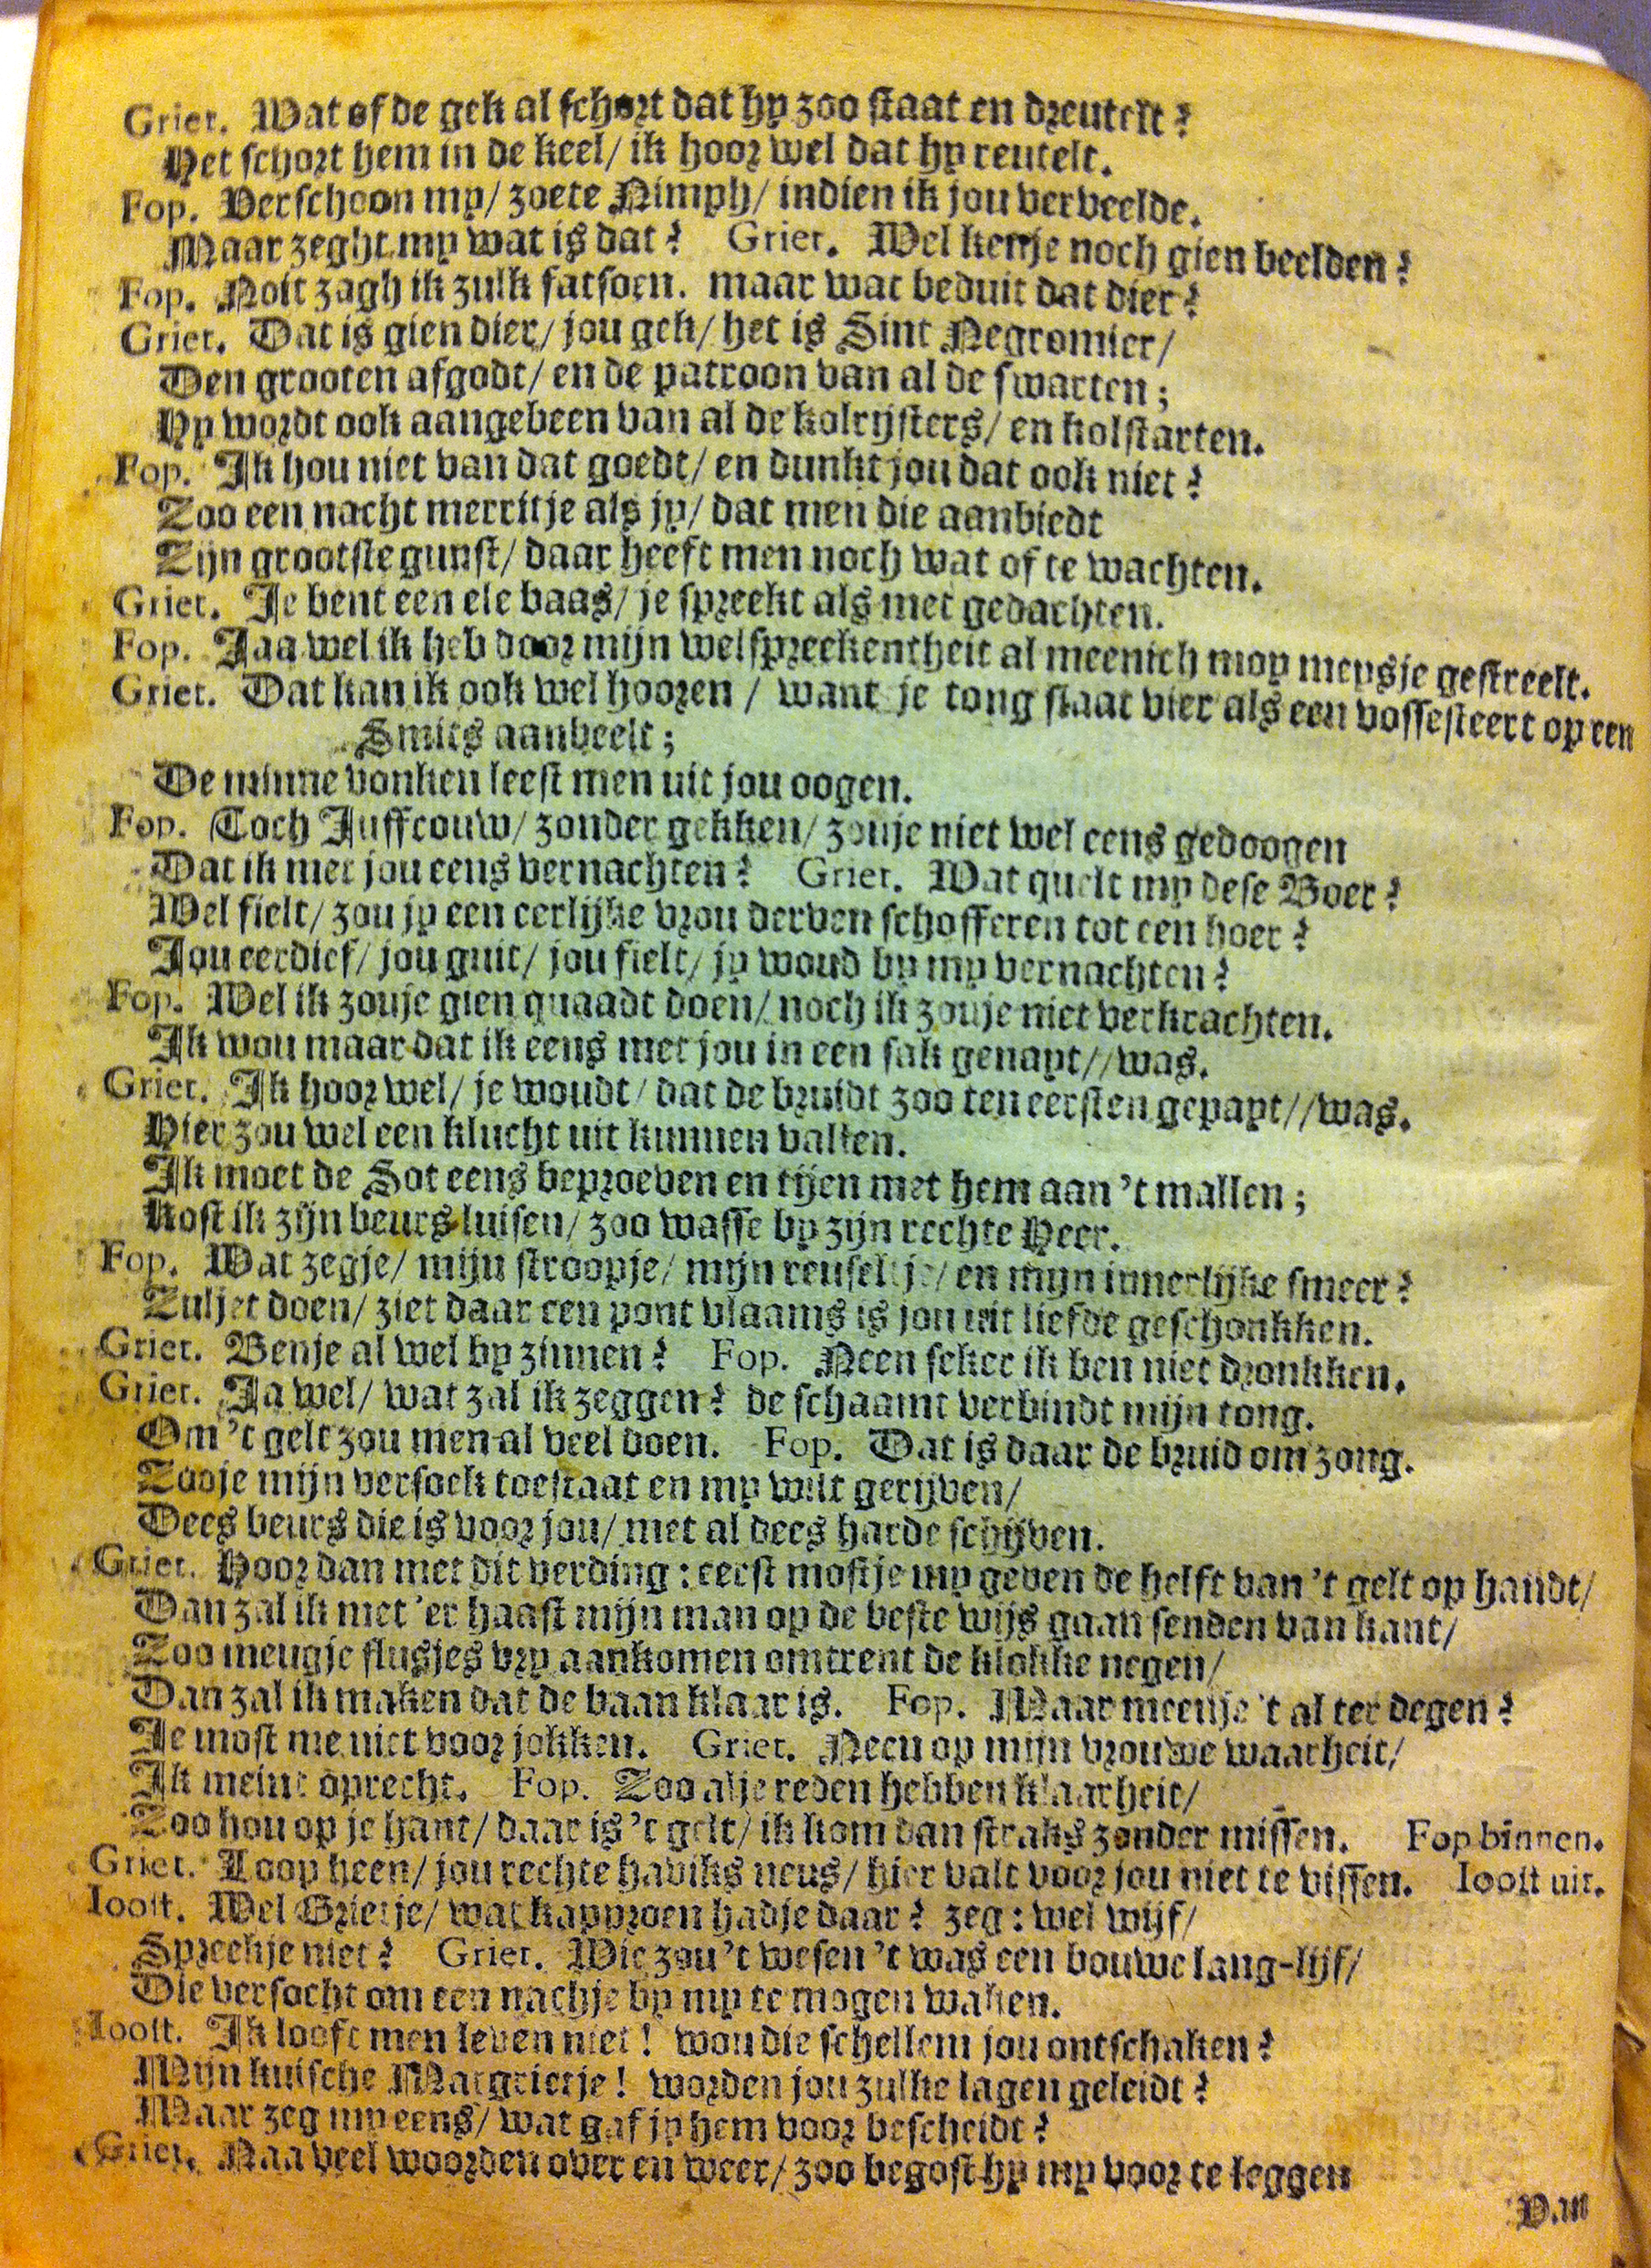 Griet. Wat of de gek al schort dat hy zoo staat en dreutelt?
Het schort hem in de keel/ ik hoor wel dat hy reutelt.
Fop. Verschoon my/ zoete Nimph/ indien ik jou verveelde.
Maar zeght my wat is dat? Griet. Wel kenje noch gien beelden?
Fop. Noit zagh ik zulk fatsoen. maar wat beduit dat dier?
Griet. Dat is gien dier/ jou gek/ het is Sint Negromier/
Den grooten afgodt/ en de patroon van al de swarten;
Hy wordt ook aangebeen van al de kolrijsters/ en kolstarten.
Fop. Ik hou niet van dat goedt/ en dunkt jou dat ook niet?
Zoo een nacht merritje als jy/ dat men die aanbiedt
Zijn grootste gunst/ daar heeft men noch wat of te wachten.
Griet. Je bent een ele baas/ je spreekt als met gedachten.
Fop. Jaa wel ik heb door mijn welspreekentheit al meenich moy meysje gestreelt.
Griet. Dat kan ik ook wel hooren / want je tong staat vier als een vossesteert op een
Smits aanbeelt;
De minne vonken leest men uit jou oogen.
Fop. Toch Juffrouw/ zonder gekken/ zouje niet wel eens gedoogen
Dat ik met jou eens vernachten? Griet. Wat quelt my dese Boer?
Wel fielt/ zou jy een eerlijke vrou derven schofferen tot een hoer?
Jou eerdief/ jou guit/ jou fielt/ jy woud by my vernachten?
Fop. Wel ik zouje gien quaadt doen/ noch ik zouje niet verkrachten.
Ik wou maar dat ik eens met jou in een sak genayt//was.
Griet. Ik hoor wel/ je woudt/ dat de bruidt zoo ten eersten gepapt//was.
Hier zou wel een klucht uit kunnen vallen.
Ik moet de Sot eens beproeven en tijen met hem aan 't mallen;
Kost ik zijn beurs luisen/ zoo wasse by zijn rechte Heer.
Fop. Wat zegje/ mijn stroopje/ mijn reuseltje/ en mijn innerlijke smeer?
Zuljet doen/ ziet daar een pont vlaams is jou uit liefde geschonkken.
Griet. Benje al wel by zinnen? Fop. Neen seker ik ben niet dronkken.
Griet. Ja wel/ wat zal ik zeggen? de schaamt verbindt mijn tong.
Om 't gelt zou men al veel doen. Fop. Dat is daar de bruid om zong.
Zooje mijn versoek toestaat en my wilt gerijven/
Dees beurs die is voor jou/ met al dees harde schijven.
Griet. Hoor dan met dit verding: eerst mostje my geven de helft van 't gelt op handt/
Dan zal ik met 'er haast mijn man op de beste wijs gaan senden van kant/
Zoo meugje flusjes vry aankomen omtrent de klokke negen/
Dan zal ik maken dat de baan klaar is. Fop. Maar meenje 't al ter degen?
Je most me niet voor jokken. Griet. Neen op mijn vrouwe waarheit/
Ik meint oprecht. Fop. Zoo alje reden hebben klaarheit/
Zoo hou op je hant/ daar is 't gelt/ ik kom dan straks zonder missen. Fop binnen.
Griet. Loop heen/ jou rechte haviks neus/ hier valt voor jou niet te vissen. Ioost uit.
Ioost. Wel Grietje/ wat kapproen hadje daar? zeg: wel wijf/
Spreekje niet? Griet. Wie zou 't wesen 't was een bouwe lang-lijf/
Die versocht om een nachje by my te mogen waken.
Ioost. Ik looft men leven niet! wou die schellem jou ontschaken?
Mijn kuische Margrietje! worden jou zulke lagen geleidt?
Maar zeg my eens/ wat gaf jy hem voor bescheidt?
Griet. Naa veel woorden over en weer/ zoo begost hy my voor te leggen